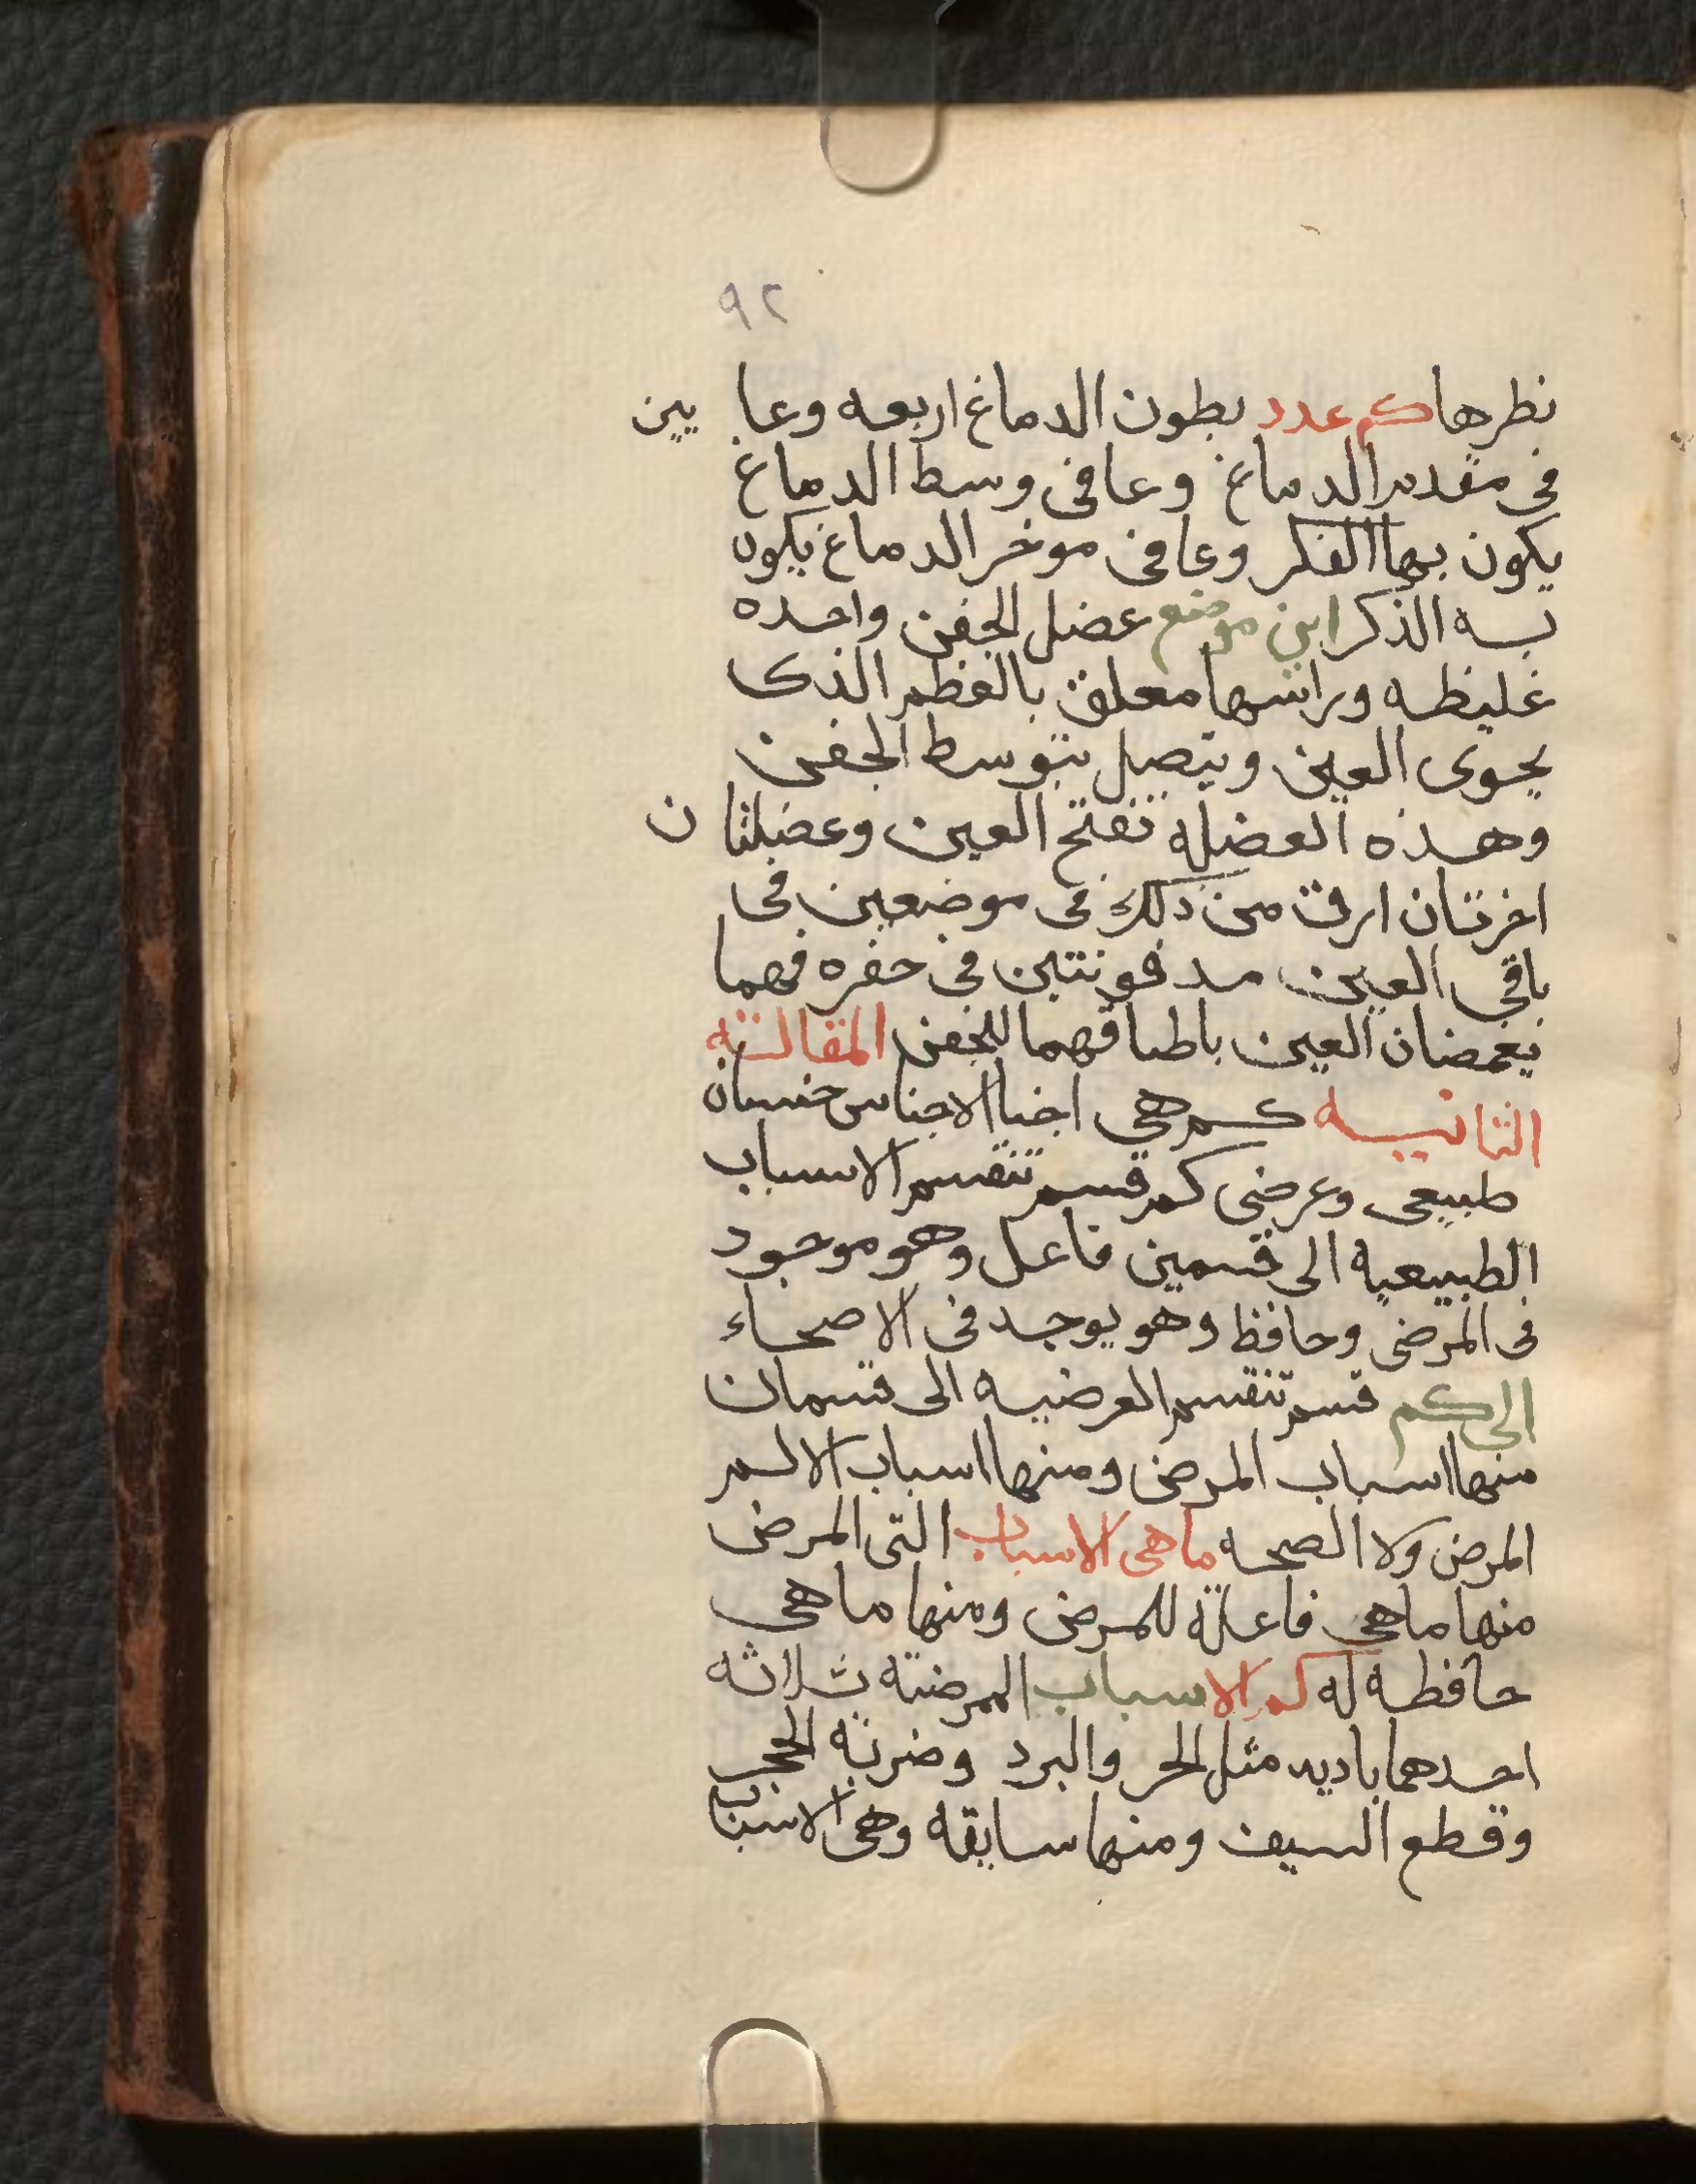 ٩٢
نظرها كم عدد بطون الدماغ اربعه وعا يين
فى مقدم الدماغ وعا فى وسط الدماغ
يكون بها الفكر وعا فى موخر الدماغ يكون
به الذكر اين موضع عضل الجفن واحده
غليظه وراسها معلق بالعظم الذى
يحوى العين ويتصل بتوسط الجفن
وهذه العضلة تفتح العين وعضلتان
اخرتان ارق من ذلك فى موضعين فى
باقى العين مدفونتين فى حفره فهما
يغمضان العين باطباقهما للجفن المقالة
الثانيه كم هى اجنا الاجناس جنسان
طبيعى وعرضى كم قسم تنقسم الاسباب
الطبيعية الى قسمين فاعل وهو موجود
فى المرضى وحافظ وهو يوجد فى الاصحاء
الى كم قسم تنقسم العرضيه الى قسمان
منها اسباب المرض ومنها اسباب الالم
المرض ولا الصحه ماهى الاسباب التى المرض
منها ماهى فاعلة للمرض ومنها ماهى
حافظه له كم الاسباب الممرضة ثلاثه
احدهما باديه مثل الحر والبرد وضربة الحجر
وقطع السيف ومنها سابقه وهى الاسباب